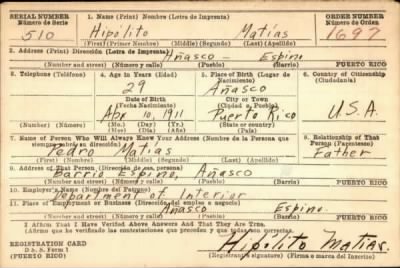 SERIAL NUMBER 1. Name (Print) Nombre (Letra de Imprenta) ORDER NUMBER
Número de Serie Número de Orden
510 Hipólito Matías 1697
(First) (Primer Nombre) (Middle) (Segundo) (Last) (Apellido)
2. Address (Print) Dirección (Letra de Imprenta)
Añasco - Espino
(Number and street) (Número y calle) (Pueblo) (Barrio) PUERTO RICO
3. Telephone (Teléfono) 4. Age in Years (Edad) 5. Place of Birth (Lugar de Nacimiento) 6. Country of Citizenship (Ciudadanía)
29 Añasco
Date of Birth City or Town
(Fecha Nacimiento) (Ciudad o Pueblo)
Apr. 10, 1911 Puerto Rico U.S.A.
(Mo.) (Day) (Yr.) (State or country)
(Mes) (Día) (Año) (Estado o país)
7. Name of Person Who Will Always Know Your Address (Nombre de la Persona que siempre sabrá su dirección) 8. Relationship of That Person (Parentesco)
Pedro Matías Father
(First) (Nombre) (Middle) (Segundo) (Last) (Apellido)
9. Address of That Person (Dirección de esa persona)
Barrio Espino, Añasco
(Number and street) (Número y calle) (Pueblo) (Barrio) PUERTO RICO
10. Employer's Name (Nombre del Patrono)
Department of Interior
11. Place of Employment or Business (Dirección del empleo o negocio)
Añasco Espino.
(Number and street) (Número y calle) (Pueblo) (Barrio) PUERTO RICO
I Affirm That I Have Verified Above Answers And That They Are True.
(Afirmo que he verificado las contestaciones que preceden y que todas son ciertas).
REGISTRATION CARD Hipólito Matías.
D. S. S. Form 1 (Registrant's signature) (Firma o marca del Inscrito)
(PUERTO RICO)